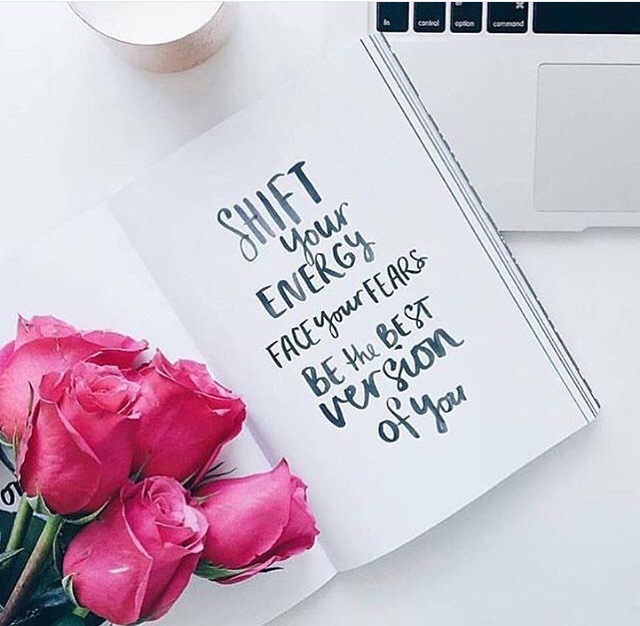 control option command
SHIFT
your
ENERGY
FACE your FEARS
BE the BEST
version
of you